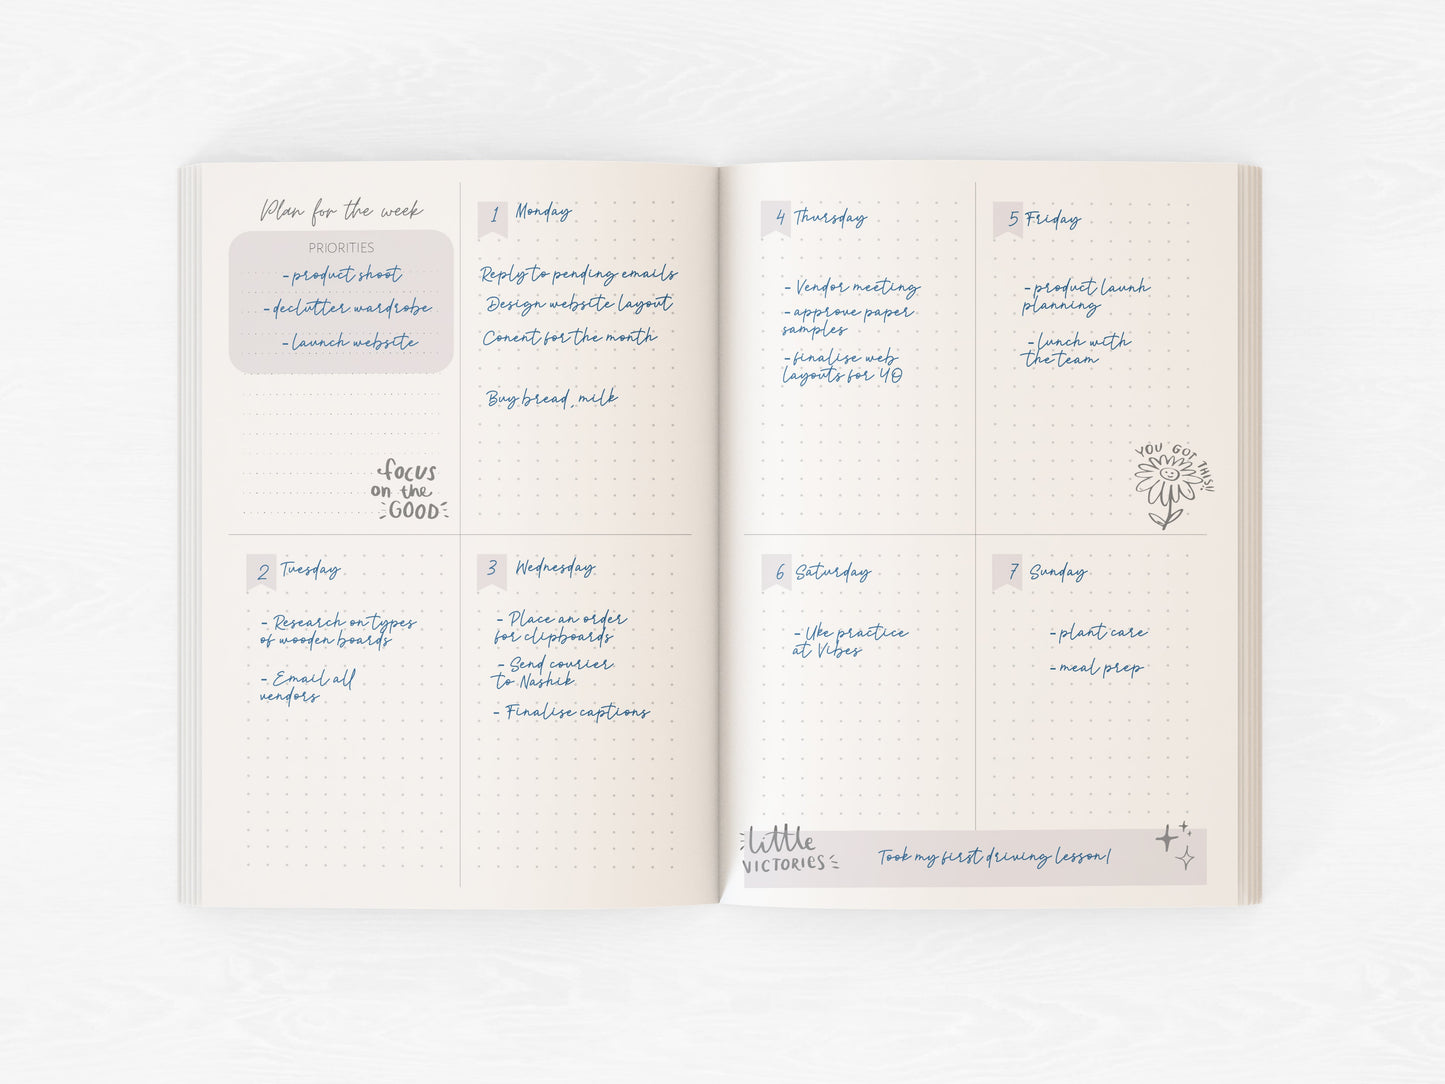 Plan for the week
PRIORITIES
-product shoot
-declutter wardrobe
-launch website
focus
on the
GOOD
1 Monday
Reply to pending emails
Design website layout
Conent for the month
Buy bread, milk
2 Tuesday
- Research on types
of wooden boards
- Email all
vendors
3 Wednesday
- Place an order
for clipboards
- Send courier
to Nashik
- Finalise captions
4 Thursday
- Vendor meeting
-approve paper
samples
-finalise web
layouts for YO
5 Friday
-product launh
planning
-lunch with
the team
YOU GOT THIS!!
6 Saturday
- Uke practice
at Vibes
7 Sunday
-plant care
-meal prep
little
VICTORIES
Took my first driving lesson!